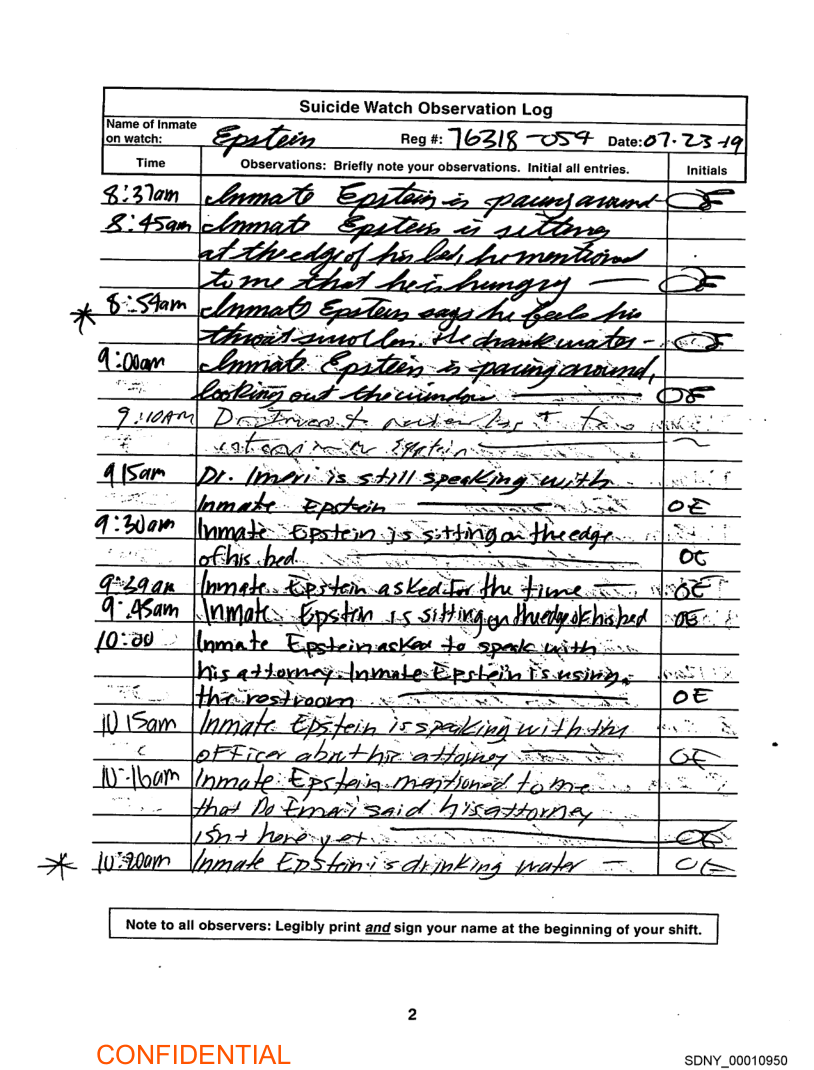 Suicide Watch Observation Log
Name of Inmate
on watch: Epstein Reg #: 76318-054 Date: 07-23-19
Time Observations: Briefly note your observations. Initial all entries. Initials
8:37am Inmate Epstein is pacing around OE
8:45am Inmate Epstein is sitting
at the edge of his bed, he mentioned
to me that he is hungry OE
* 8:54am Inmate Epstein says he feels his
throat swollen. He drank water - OE
9:00am Inmate Epstein is pacing around,
looking out the window OE
9:10AM Dr
Epstein
915am Dr. Imeri is still speaking with
Inmate Epstein OE
9:30am Inmate Epstein is sitting on the edge
of his bed OE
9:39am Inmate Epstein asked for the time OE
9:45am Inmate Epstein is sitting on the edge of his bed OE
10:00 Inmate Epstein asked to speak with
his attorney. Inmate Epstein is using
the restroom OE
10 15am Inmate Epstein is speaking with the
officer about his attorney OE
10:16am Inmate Epstein mentioned to me
that Dr Imeri said his attorney
isn't here yet OE
* 10:20am Inmate Epstein is drinking water - OE
Note to all observers: Legibly print and sign your name at the beginning of your shift.
2
CONFIDENTIAL
SDNY_00010950